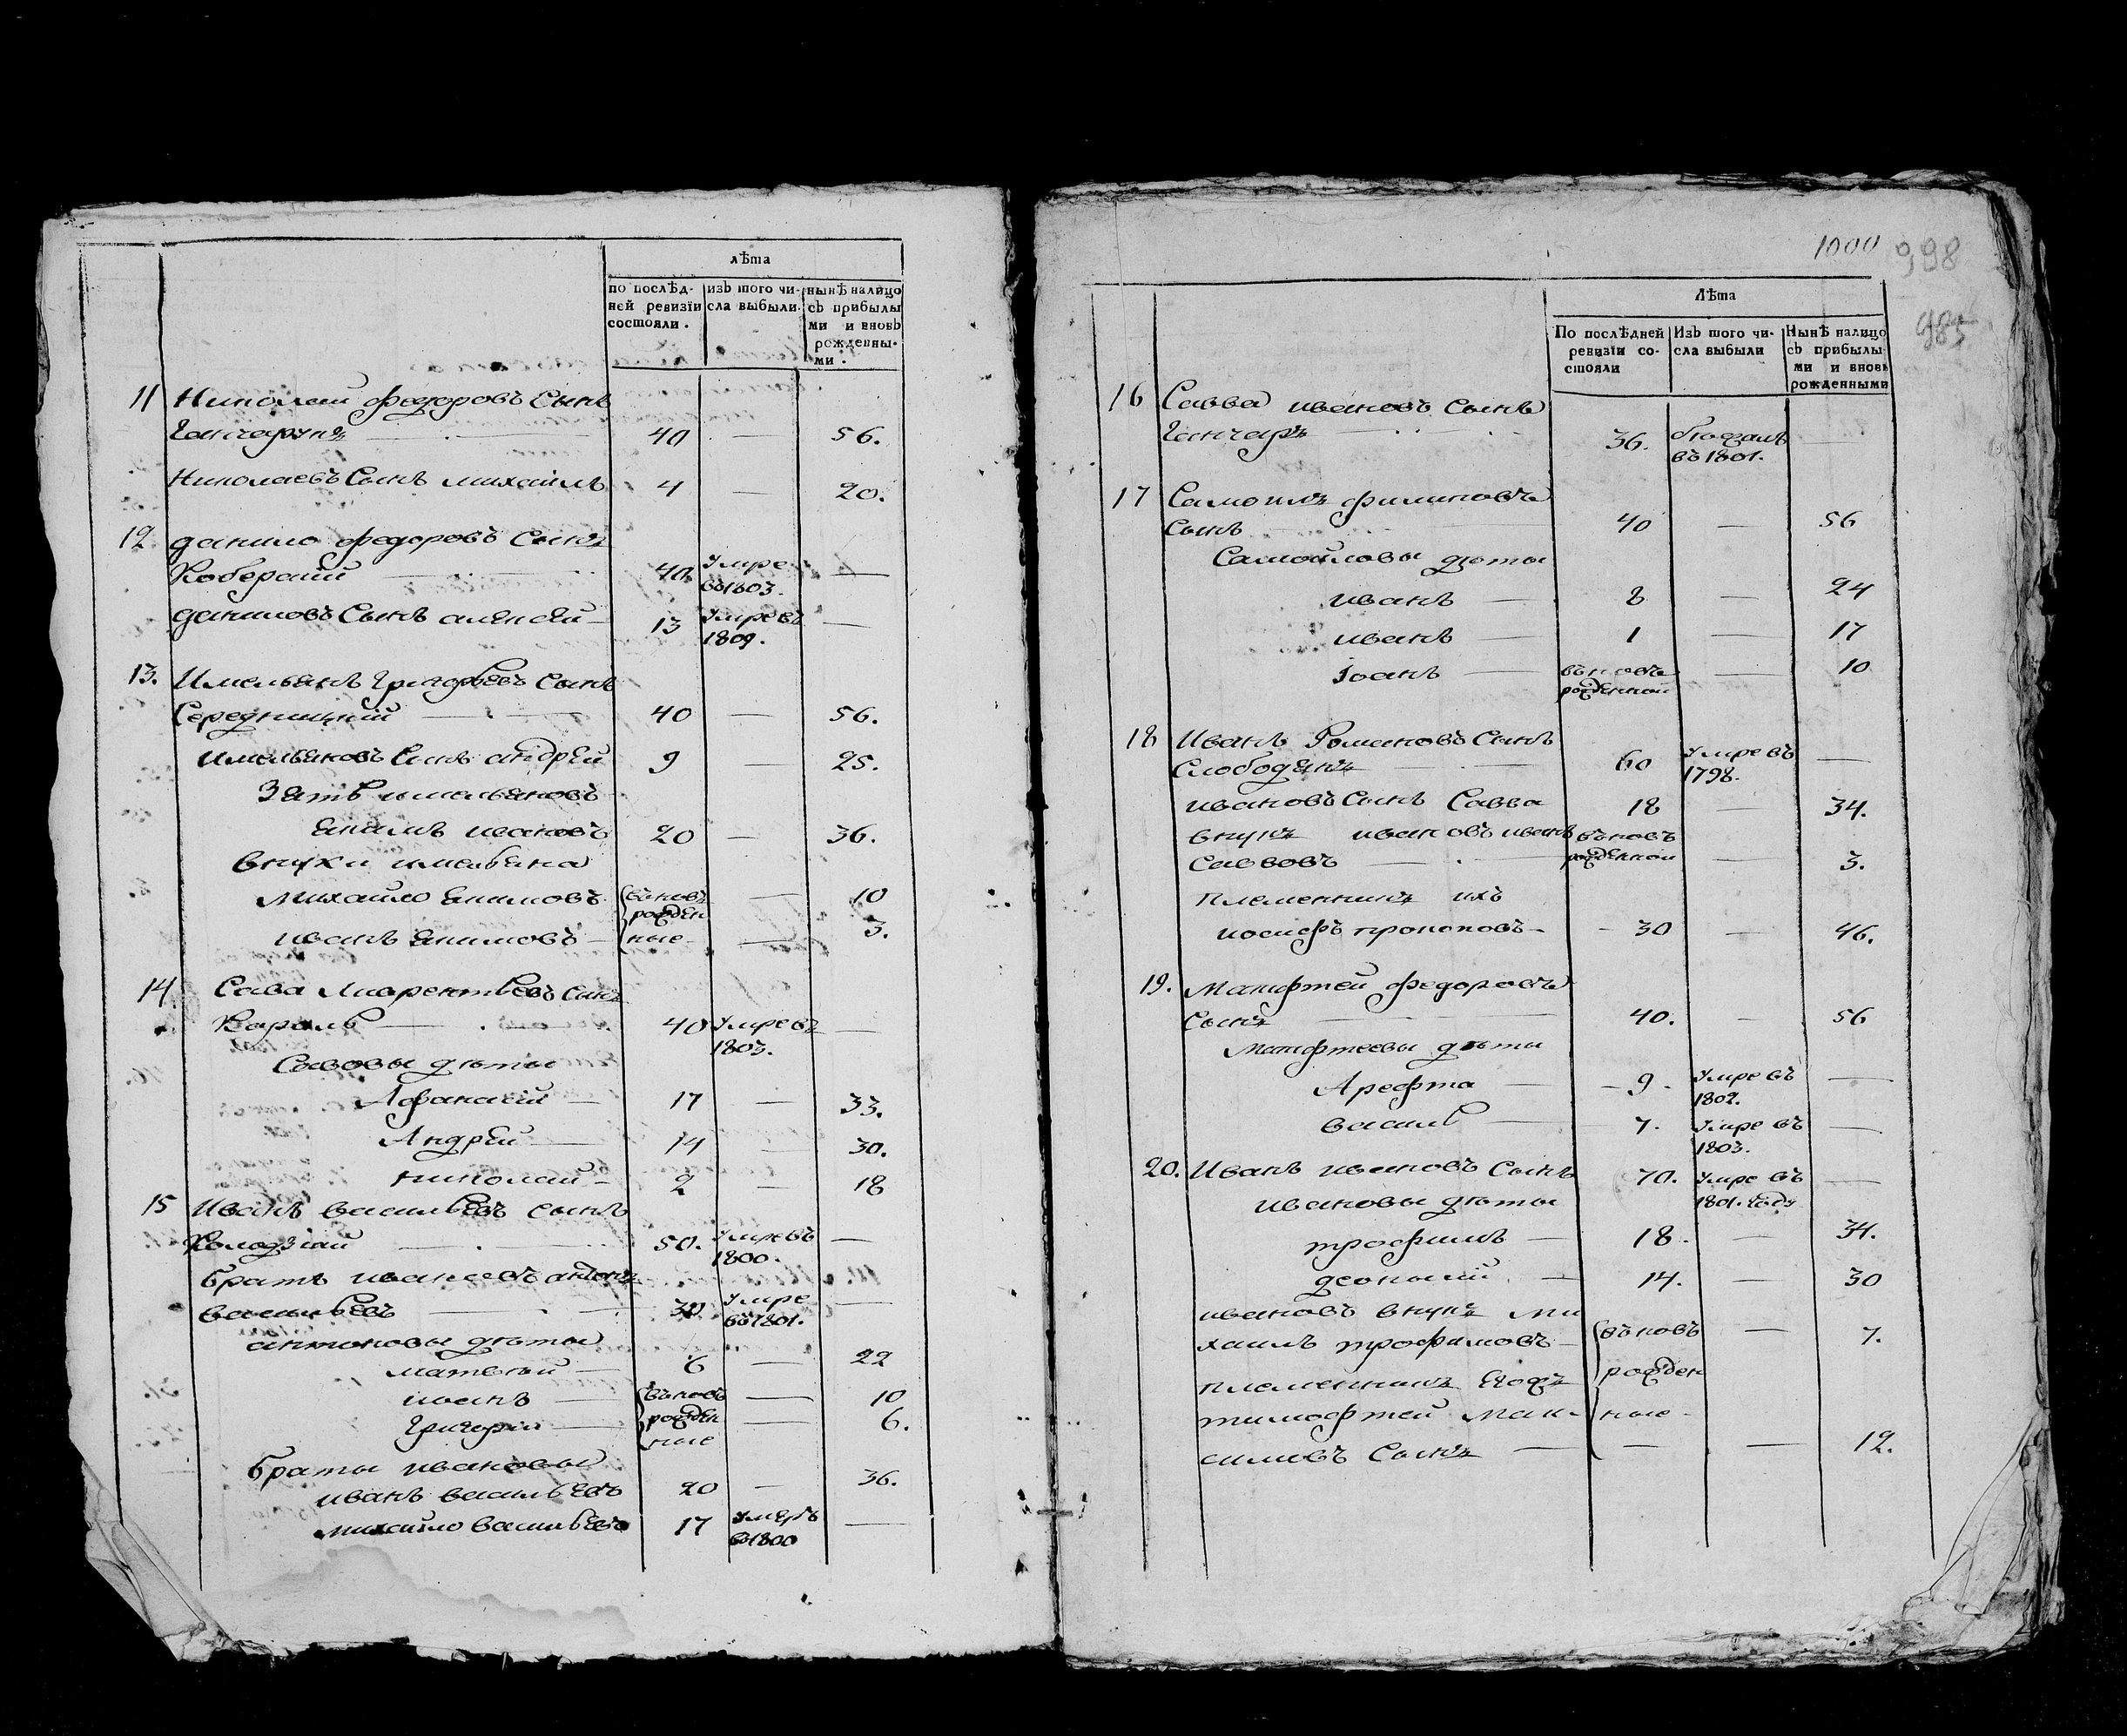 лѣта
по послѣд-
ней ревизіи
состояли.
изъ того чи-
сла выбыли.
нынѣ налицо
съ прибылы
ми и вновь
рожденны-
ми.
11 Николай федоровъ Сынъ
Ганчарукъ 40 — 56.
Николаевъ Сынъ михаилъ 4 — 20.
12 данило федоровъ Сынъ
Коберскій 40 Умре въ 1803. —
даниловъ Сынъ алексей 13 Умре въ 1809. —
13. Имельянъ Григорьевъ Сынъ
Середницкій 40 — 56.
имельяновъ Сынъ андрей 9 — 25.
Зять имельяновъ
якимъ ивановъ 20 — 36.
внуки имельяна
михайло якимовъ вновь — 10
рожден
иванъ якимовъ — ные — 3.
14 Сава Лаврентьевъ Сынъ
Кароль 40 Умре въ 1803. —
Савовы дѣты
Афанасій — 17 — 33.
Андрей — 14 — 30.
николай — 2 — 18
15 Иванъ васильевъ Сынъ
Колодзіий 50. Умре въ 1800. —
братъ ивановъ антонъ
васильевъ 30 Умре въ 1801. —
антоновы дѣты
матвѣй — 6 — 22
иванъ — вновь — 10
Григорій — рожден — 6.
ные
браты ивановы
иванъ васильевъ 20 — 36.
михайло васильевъ 17 Умеръ въ 1800 —
1000 998
985
Лѣта
По послѣдней
ревизіи со-
стояли
Изъ того чи-
сла выбыли
Нынѣ налицо
съ прибылы
ми и вновь
рожденными
16 Савва ивановъ Сынъ
Ганчаръ 36. бѣжалъ въ 1801. —
17 Самоилъ филиповъ
Сынъ 40 — 56
Самойловы дѣты
иванъ — 8 — 24
иванъ — 1 — 17
Іоанъ — вновь рожденной — 10
18 Иванъ Романовъ Сынъ
Слободянъ 60 Умре въ 1798. —
ивановъ Сынъ Савва 18 — 34.
внукъ ивановъ иванъ вновь
Саввовъ рожденной — 3.
племенникъ ихъ
иосифъ прокоповъ — 30 — 46.
19. Макифтей федоровъ
Сынъ 40. — 56
Макифтеевы дѣты
Арефта — 9. Умре въ 1802. —
василь — 7. Умре въ 1803. —
20. Иванъ ивановъ Сынъ 70. Умре въ 1801. году —
ивановы дѣты
трофимъ — 18. — 34.
деонысій — 14. — 30
ивановъ внукъ ми
хаилъ трофимовъ — вновь — 7.
племенникъ Егожъ рожден
тимофтей Мак- ные
симовъ Сынъ — — — 12.